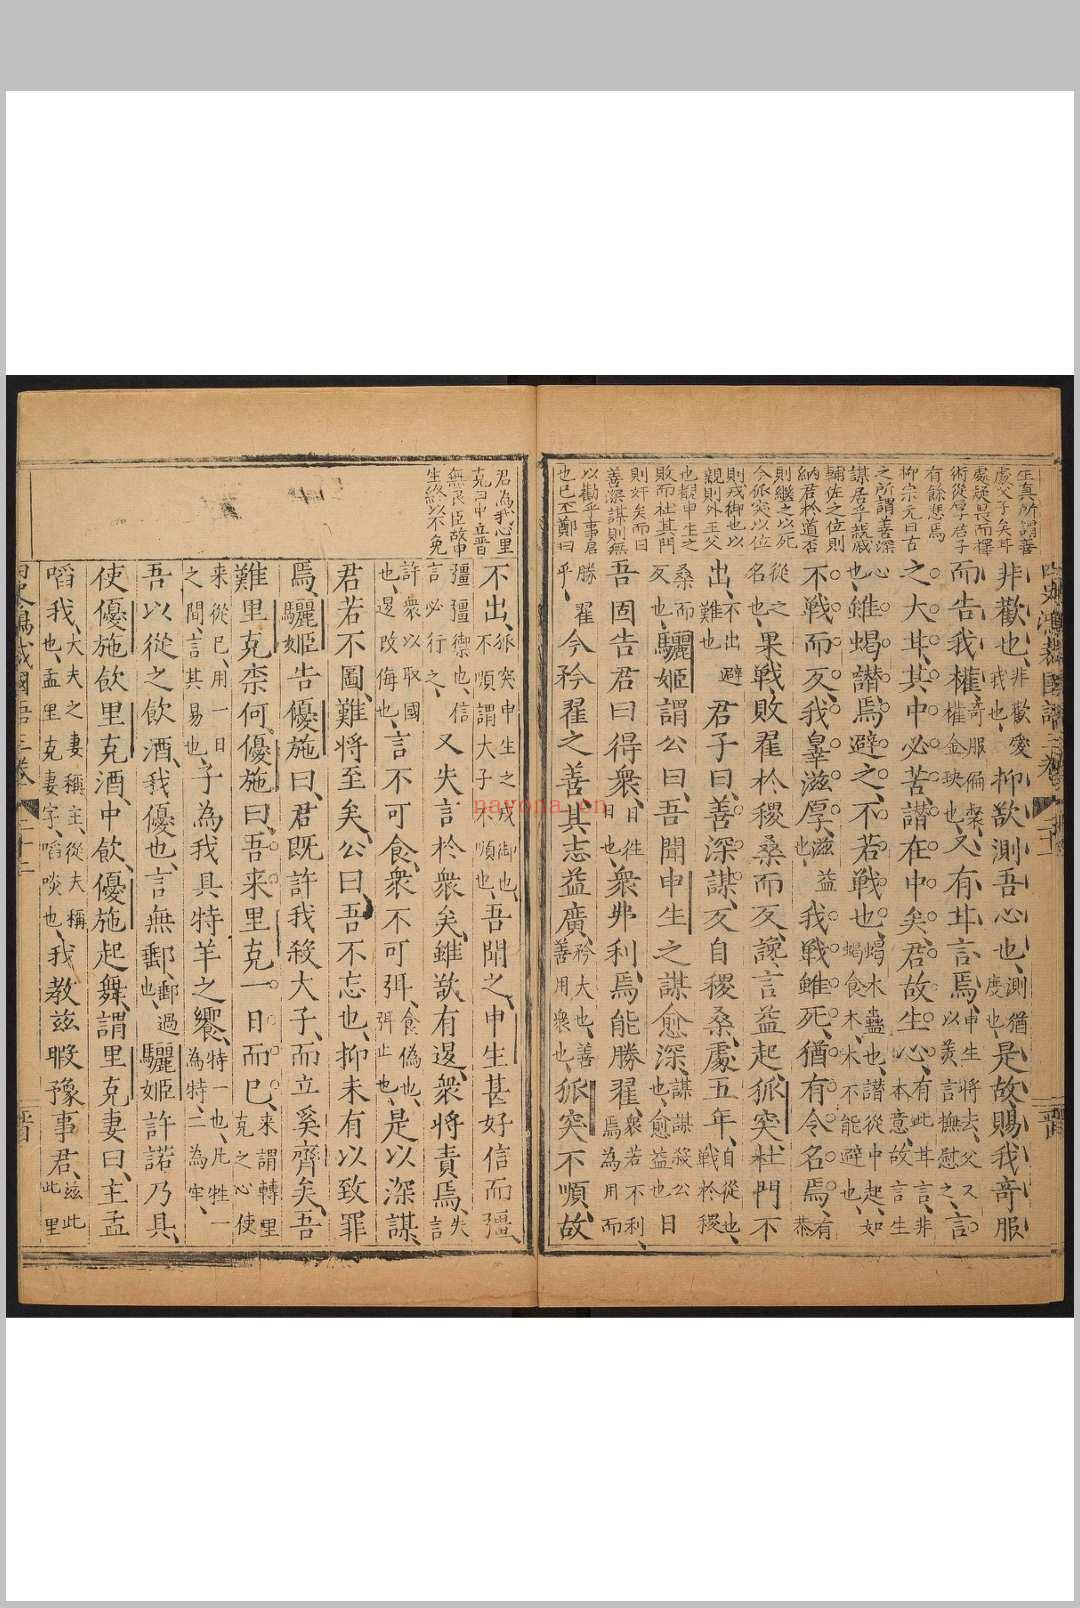 生真所謂善
處父子矣耳
處疑畏而擇
術從厚君子
有餘悲焉
柳宗元曰古
之所謂善深
謀居乎親戚
輔佐之位則
納君於道否
則繼之以死
今狐突以位
則戎御也以
親則外王父
也覩申生之
敗而杜其門
則奸矣而曰
善深謀則無
以勸乎事君
也已丕鄭曰
非歡也、非歡愛我也、抑欲測吾心也、測猶度也、是故賜我奇服
而告我權、奇服偏裻權金玦也、又有甘言焉、申生將去、父又以美言撫慰之、言
之大甘、其中必苦、譖在中矣、君故生心、有此甘言、非本意、故言生
心也、雖蝎譖焉避之、不若戰也、蝎木蠹也、譖從中起、如蝎食木、木不能避也、
不戰而反、我辠滋厚、滋益也、我戰雖死、猶有令名焉、有恭
從之名也、果戰、敗翟於稷桑而反、讒言益起、狐突杜門不
出、不出避難也、君子曰、善深謀、反自稷桑、處五年、自從也、戰於稷
桑而反也、驪姬謂公曰、吾聞申生之謀愈深、謀謀殺公也、愈益也、日
吾固告君曰得衆、日往日也、衆弗利、焉能勝翟、衆若不利、焉為用而
勝翟乎、今矜翟之善、其志益廣、矜大也、善善用衆也、狐突不順故
君為我心里
克曰中立晉
無良臣故申
生終以不免
不出、狐突申生之戎御也、不順謂大子不順也、吾聞之、申生甚好信而彊、
彊彊禦也、信言必行之、又失言於衆矣、雖欲有退、衆將責焉、失言
許衆以取國也、退改悔也、言不可食、衆不可弭、食偽也、弭止也、是以深謀、
君若不圖、難將至矣、公曰、吾不忘也、抑未有以致罪
焉、驪姬告優施曰、君既許我殺大子、而立奚齊矣、吾
難里克、柰何、優施曰、吾来里克、一日而已、来謂轉里克之心、使
来從已、用一日之間、言其易也、子為我具特羊之饗、特一也、凡牲一為特、二為牢、
吾以從之飲酒、我優也、言無郵、郵過也、驪姬許諾、乃具、
使優施飲里克酒、中飲、優施起舞、謂里克妻曰、主孟
啗我、大夫之妻稱主、從夫稱也、孟里克妻字、啗啖也、我教茲暇豫事君、茲此此里